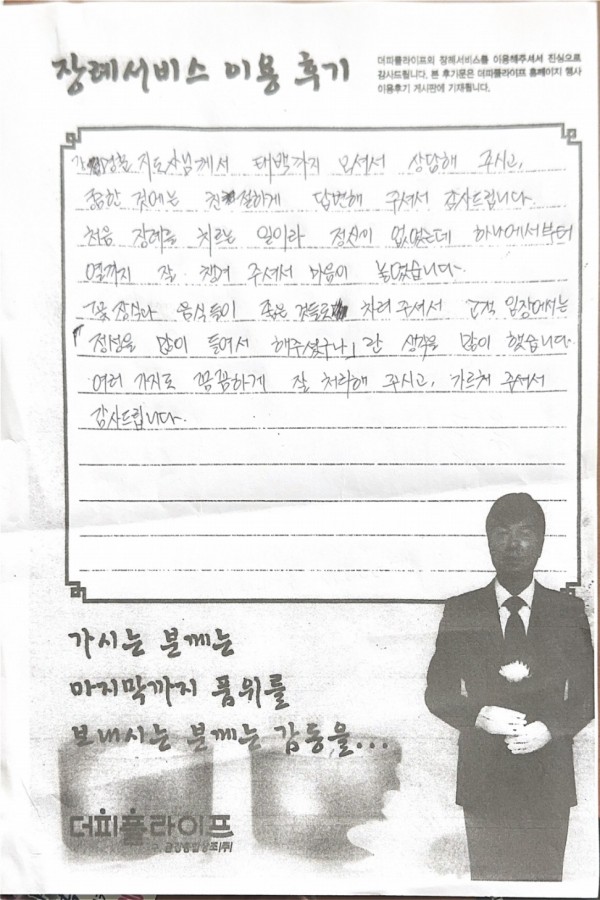 장례서비스 이용 후기
더피플라이프의 장례서비스를 이용해주셔서 진심으로
감사드립니다. 본 후기문은 더피플라이프 홈페이지 행사
이용후기 게시판에 기재됩니다.
지도사님께서 태백까지 오셔서 상담해 주시고,
궁금한 것에는 친절하게 답변해 주셔서 감사드립니다.
처음 장례를 치르는 일이라 정신이 없었는데 하나에서부터
열까지 잘 챙겨 주셔서 마음이 놓였습니다.
꽃장식과 음식들이 좋은 것들로 차려 주셔서 고객 입장에서는
「정성을 많이 들여서 해주셨구나」란 생각을 많이 했습니다.
여러 가지로 꼼꼼하게 잘 처리해 주시고, 가르쳐 주셔서
감사드립니다.
가시는 분께는
마지막까지 품위를
보내시는 분께는 감동을...
더피플라이프